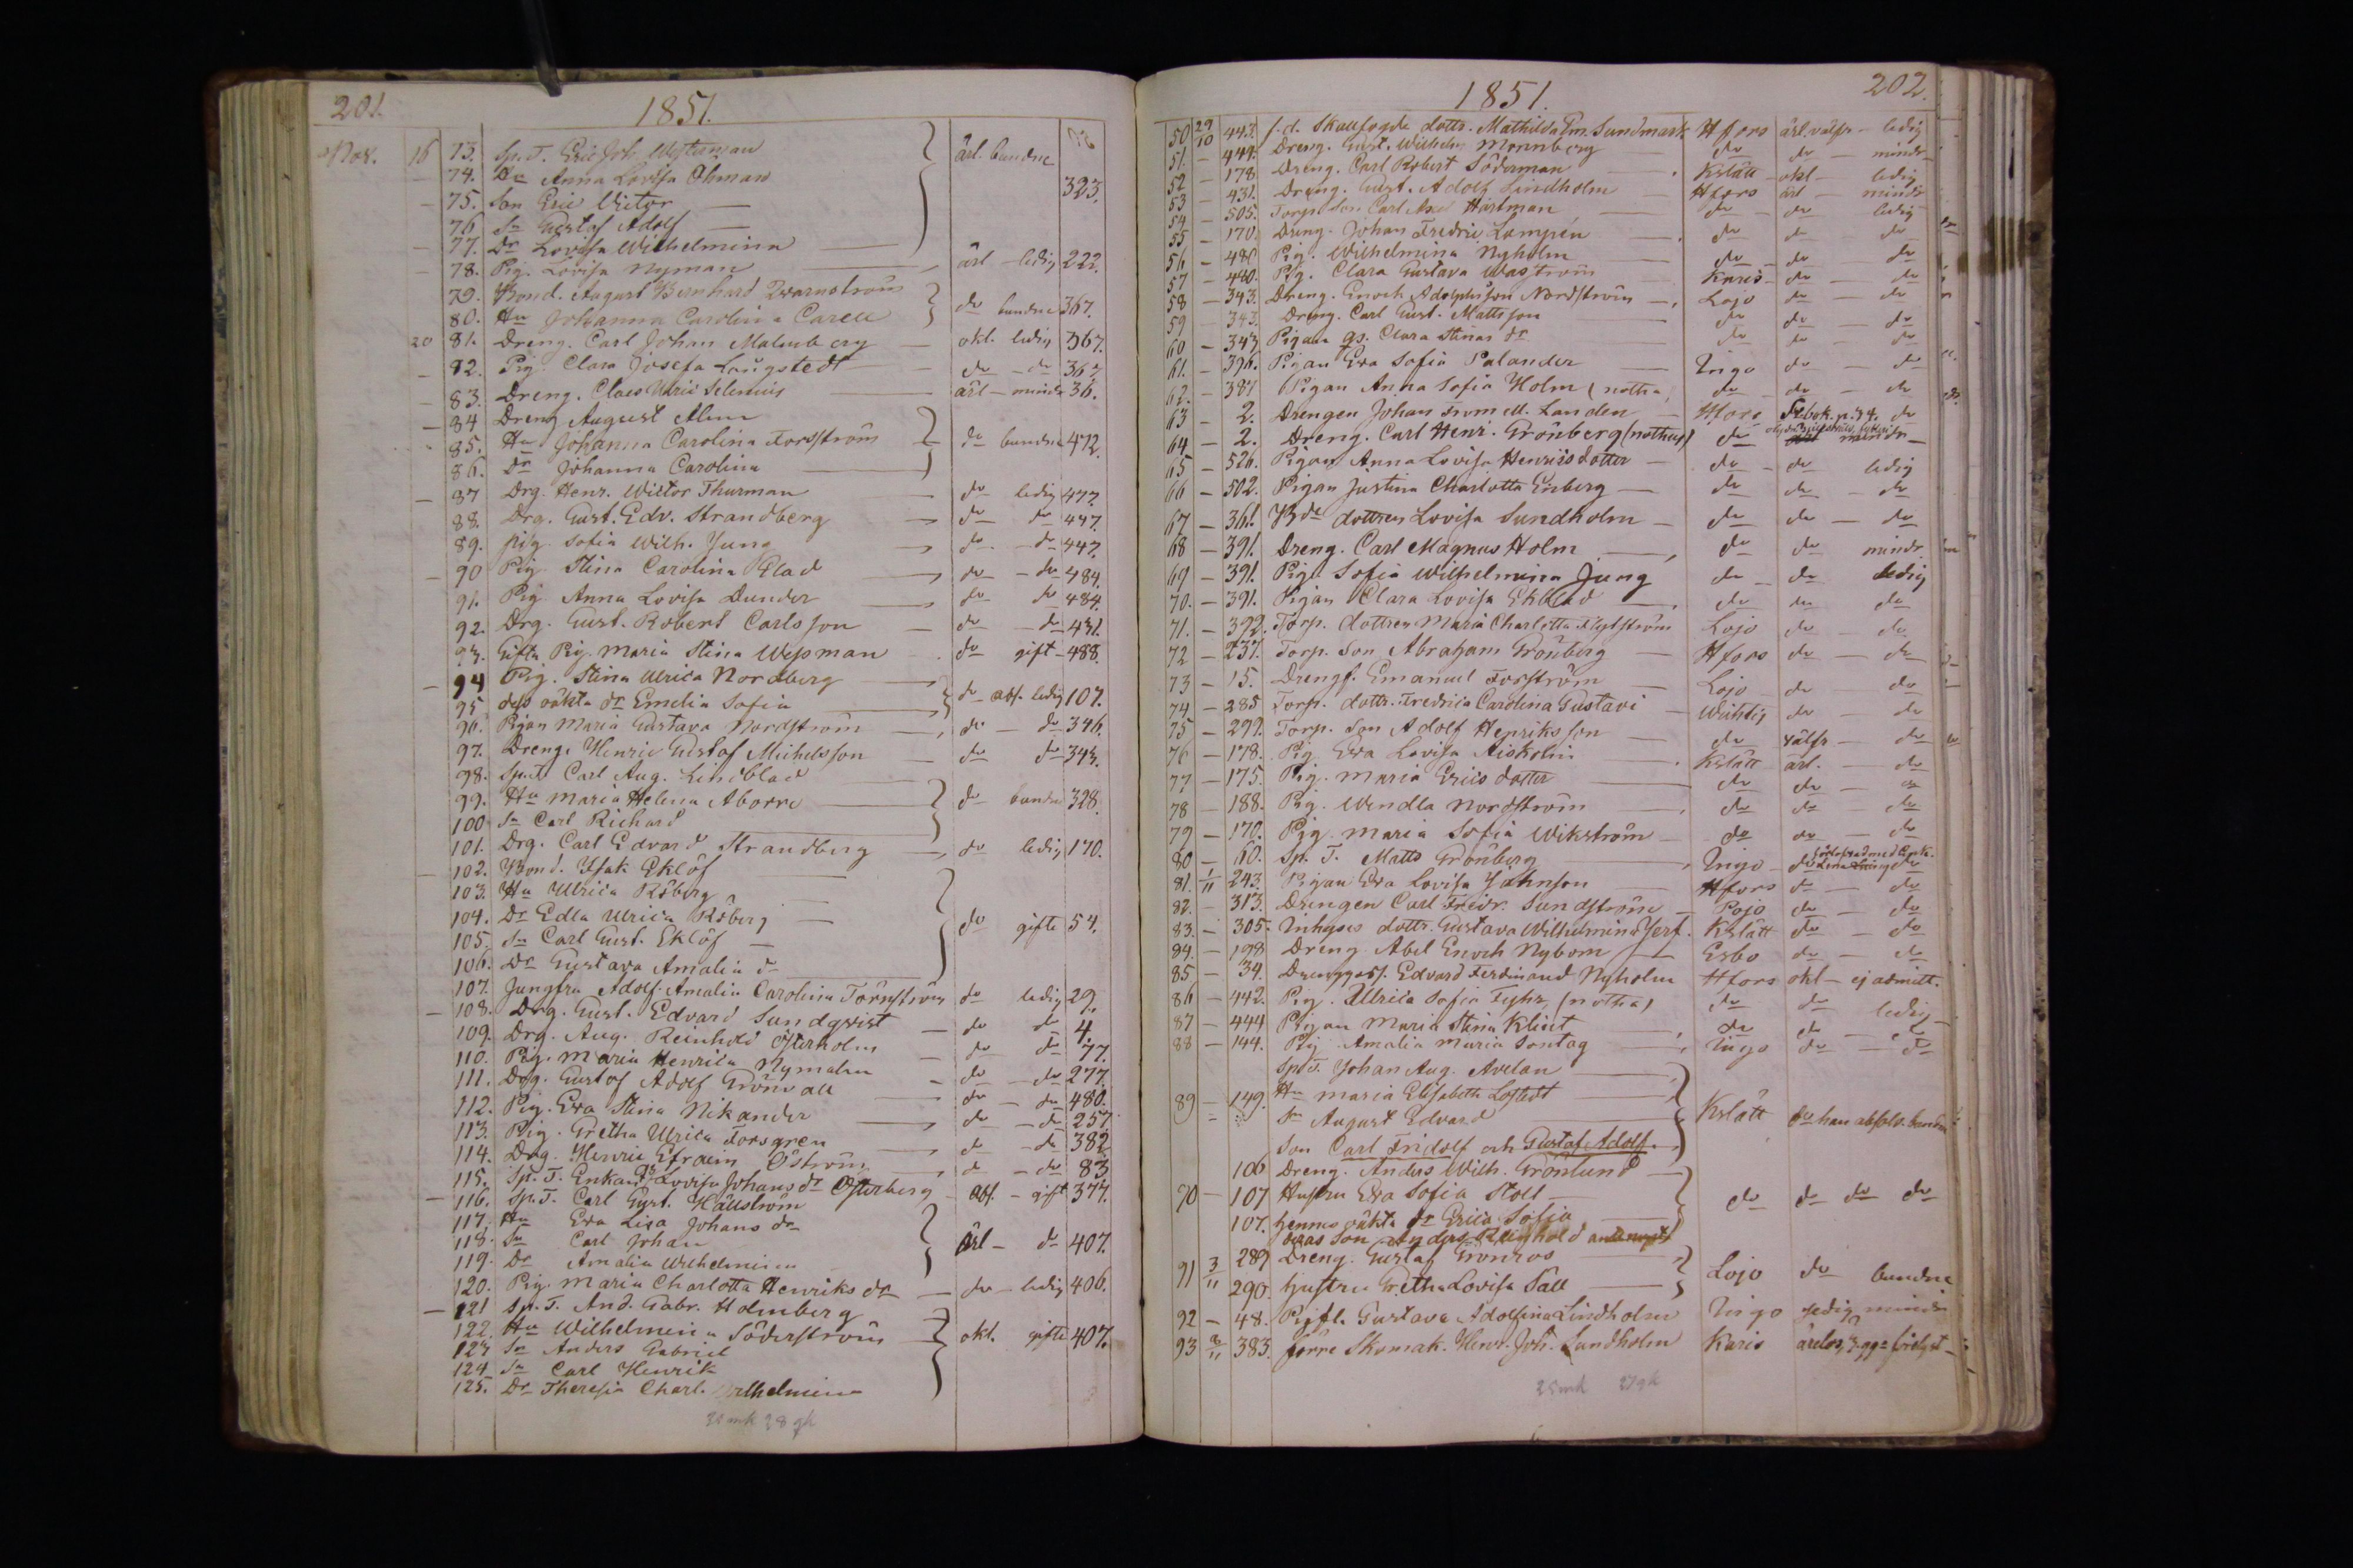 201.
1851.
Nov. 16 73. Sp. T. Eric Joh. Westerman ärl. bundne
74. Du Anna Lovisa Öhman 323.
75. Son Eric Victor
76 Sn Gustof Adolf
77. Dr Lovisa Wilhelmina
78. Pig. Lovisa Nyman ärl - ledig 222.
79. Bond. August Bernhard Qvarnström
80. Hu Johanna Carolina Carell do bundne 367.
20 81. Dreng. Carl Johan Malmberg okl. ledig 367.
82. Pig. Clara Josefa Långstedt do - do 367
83. Dreng. Claes Ulric Selenius ärl - mindr 36.
84 Dreng August Alm
85. Hu Johanna Carolina Forsström do bundne 472.
86. Dr Johanna Carolina
87 Drg. Henr. Wictor Thurman do ledig 477.
88. Drg. Gust. Edv. Strandberg do do 447.
89. Pig. Sofia Wilh. Jung do - do 447.
90 Pig. Stina Carolina Blad do - do 484.
91. Pig Anna Lovisa Dunder do do 484.
92. Drg. Gust. Robert Carlsson do - do 431.
93. Gifta Pig. Maria Stina Wessman do gift - 488.
94 Pig. Stina Ulrica Nordberg
95 dess oäkta dr Emelia Sofia do abs. ledig 107.
96. Pigan Maria Gustava Nordström do - do 346.
97. Dreng. Henric Gustaf Michelsson do do 343.
98. Sp. T. Carl Aug. Lindblad
99. Hu Maria Helena Aborre do bundne 328.
100 Sn Carl Richard
101. Drg. Carl Edvard Strandberg do ledig 170.
102. Bond. Isak Eklöf
103. Hu Ulrica Röberg
104. Dr Edla Ulrica Röberg do gifte 54.
105. Sn Carl Gust. Eklöf
106. Dr Gustava Amalia do
107. Jungfru Adolf. Amalia Carolina Törnström do ledig 29.
108. Drg. Gust. Edvard Sundqvist do do 4.
109. Drg. Aug. Reinhold Österholm do do 77.
110. Pig. Maria Henrica Nymalm do - do 277.
111. Drg. Gustaf Adolf Grönvall do - do 480.
112. Pig. Eva Stina Nikander do - do 257.
113. Pig. Gretha Ulrica Forsgren do - do 382
114. Drg. Henric Efraim Öström do - do 83
115. Sp. T. Enkan Lovisa Johansdr Österberg Abs. - gift 377.
116. Sp. T. Carl Gust. Hällström
117. Hu Eva Lisa Johans dr
118. Sn Carl Johan ärl - do 407.
119. Dr Amalia Wilhelmina
120. Pig. Maria Charlotta Henriks dr do - ledig 406.
121 Sp. T. And. Gabr. Holmberg
122. Hu Wilhelmina Söderström okl. gifte 407.
123 Sn Anders Gabriel
124 Sn Carl Henrik
125. Dr Theresia Charl. Wilhelmina
25 mk 28 qk
1851.
202.
50 29/10 443. f.d. Skallfogde dottr. Mathilda Em. Sundmark Hfors ärl. välfr - ledig
51. - 444. Dreng. Gust. Wilhelm Mannberg do do - mindr
52 - 178 Dreng. Carl Robert Söderman Kslätt okl - ledig
53 - 431. Dreng. Gust. Adolf Lindholm Hfors ärl - mindr
54 - 505. Torp. Son Carl Axel Hartman do - do ledig
55 - 170. Dreng. Johan Fredric Lampen do do do
56 - 486 Pig. Wilhelmina Nyholm do - do do
57 - 480. Pig. Clara Gustava Wasström Karis - do - do
58 - 343. Dreng. Enoch Adolphsson Nordström Lojo do - do
59 - 343. Dreng. Carl Gust. Mattsson do do - do
60 - 343 Pigan gs. Clara Stinas dr do do - do
61. - 396. Pigan Eva Sofia Palander Ingo do - do
62. - 387 Pigan Anna Sofia Holm (notha) do do - do
63 - 2. Drengen Johan Im. Landen Hfors Se bok. p. 34. do
64 - 2. Dreng. Carl Henr. Grönberg (nothus) do mindr
65 - 526. Pigan Anna Lovisa Henricsdotter do - do ledig
66 - 502. Pigan Justina Charlotta Enberg do do - do
67 - 361. Bde dottren Lovisa Sundholm do do - do
68 - 391. Dreng. Carl Magnus Holm do do mindr.
69 - 391. Pig. Sofia Wilhelmina Jung do - do ledig
70. - 391. Pigan Clara Lovisa Ekblad do do do
71. - 392. Torp. dottren Maria Charlotta Flytström Lojo do - do
72 - 237. Torp. Son Abraham Grönberg Hfors do - do
73 - 15. Drengs. Emanuel Forsström Lojo do - do
74 - 285 Torp. dottr. Fredrica Carolina Gustavi Wichtis do - do
75 - 299. Torp. Son Adolf Henriksson do välfr - do
76 - 178. Pig Eva Lovisa Kslätt ärl. - do
77 - 175 Pig. Maria Ericsdotter do do - do
78 - 188. Pig. Wendla Nordström do do - do
79 - 170. Pig. Maria Sofia Wikström do do - do
80 - 60. Sp. T. Matts Grönberg Ingo do förlofvad med Enk. Lena do
81. 1/11 243. Pigan Eva Lovisa Johnson Hfors do - do
82. - 313. Drengen Carl Fredr. Sundström Pojo do - do
83. - 305. Inhyses dottr. Gustava Wilhelmina Jerf. Kslätt do - do
84. - 198 Dreng Abel Enoch Nybom Esbo do - do
85 - 34. Drenggoss. Edvard Ferdinand Nyholm Hfors okl - ej admitt.
86 - 442. Pig. Ulrica Sofia Fyhr (notha) do do ledig
87 - 444 Pigan Maria Stina Klint do do - do
88 - 144. Pig Amalia Maria Sontag Ingo do - do
Sp. T. Johan Aug. Avelan
89 - 149. Hu Maria Elisabeth Lofstedt Kslätt do han absolv. bundne
Sn August Edvard
Son Carl Fridolf och Gustaf Adolf.
106 Dreng. Anders Wilh. Grönlund
90 - 107 Hustru Eva Sofia Stoll do do do do
107. hennes oäkta dr Erica Sofia
deras son Anders Reinhold
91 3/11 289 Dreng. Gustaf Grönros
290. hustru Gretha Lovisa Säll Lojo do bundne
92 - 48. Pigfl. Gustava Adolfina Lindholm Ingo ledig mindr
93 8/11 383. förre Skomak. Henr. Joh. Sundholm Karis ärelös, 3 gge frälgst
25 mk 27 qk